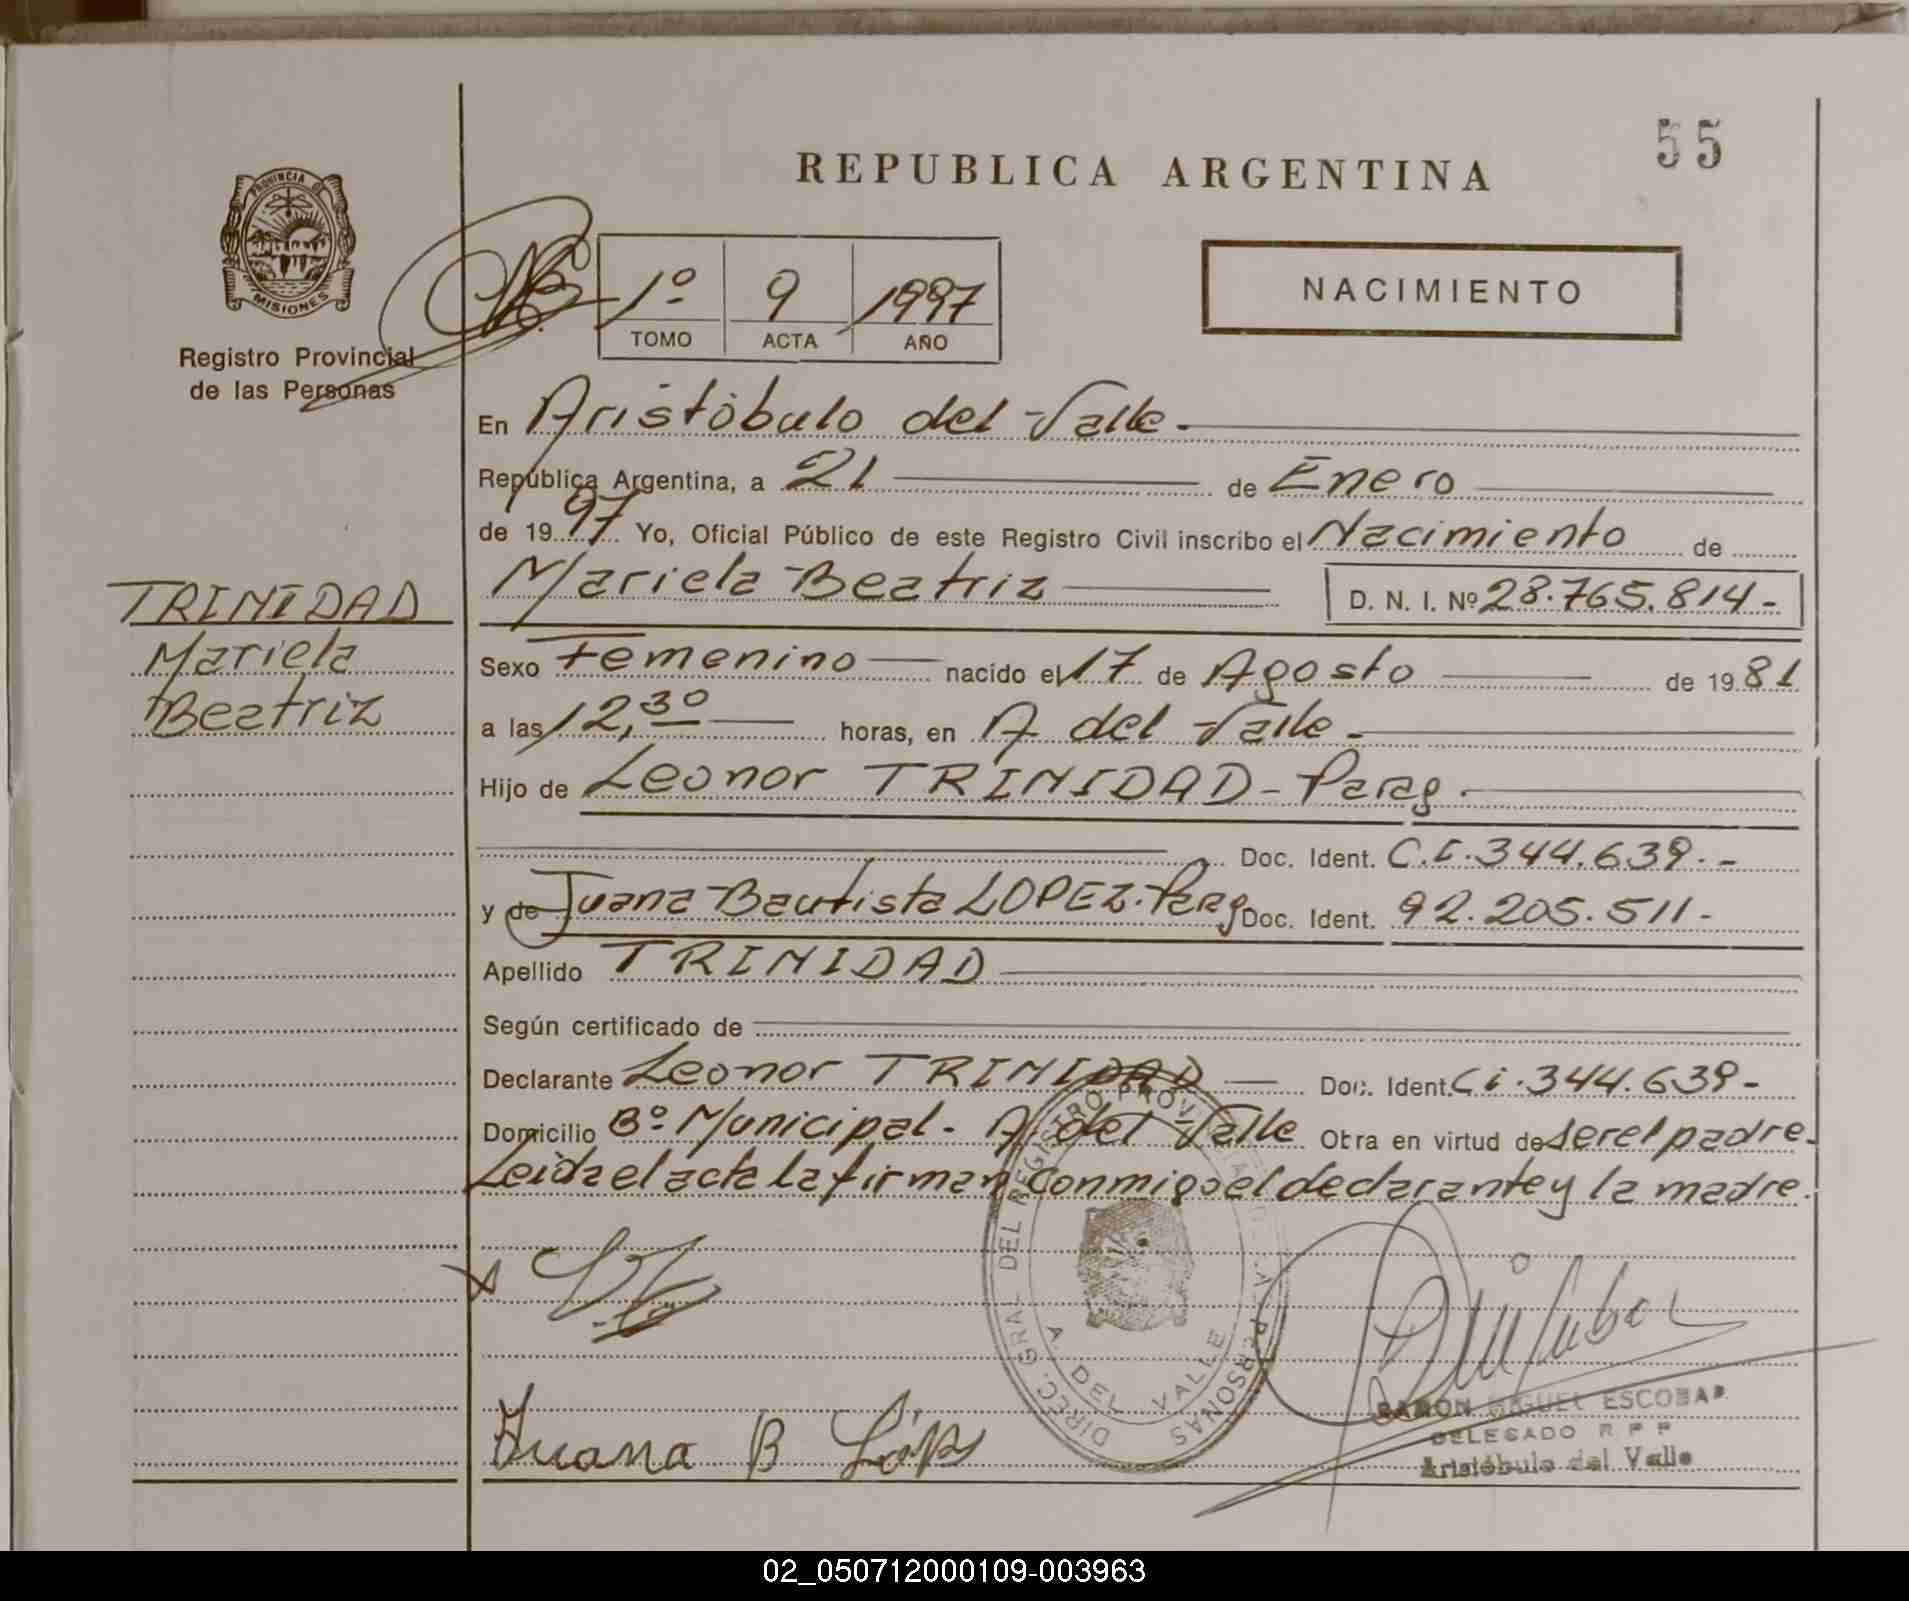 55
REPUBLICA ARGENTINA
PROVINCIA DE
MISIONES
Registro Provincial
de las Personas
1º 9 1997
TOMO ACTA AÑO
NACIMIENTO
En Aristóbulo del Valle.
República Argentina, a 21 de Enero
de 1997 Yo, Oficial Público de este Registro Civil inscribo el Nacimiento de
Mariela Beatriz D. N. I. Nº 28.765.814-
TRINIDAD
Mariela
Beatriz
Sexo Femenino nacido el 17 de Agosto de 1981
a las 12,30 horas, en A. del Valle.
Hijo de Leonor TRINIDAD - Parag.
Doc. Ident. C.I. 344.639.-
y de Juana Bautista LOPEZ. Parag Doc. Ident. 92.205.511-
Apellido TRINIDAD
Según certificado de
Declarante Leonor TRINIDAD Doc. Ident. Ci. 344.639-
Domicilio Bº Municipal. A. del Valle Obra en virtud de ser el padre.
Leida el acta la firman conmigo el declarante y la madre.
DIREC. GRAL DEL REGISTRO PROVINCIAL DE LAS PERSONAS
A. DEL VALLE
Juana B López
RAMON MIGUEL ESCOBAR
DELEGADO R P P
Aristóbulo del Valle
02_050712000109-003963